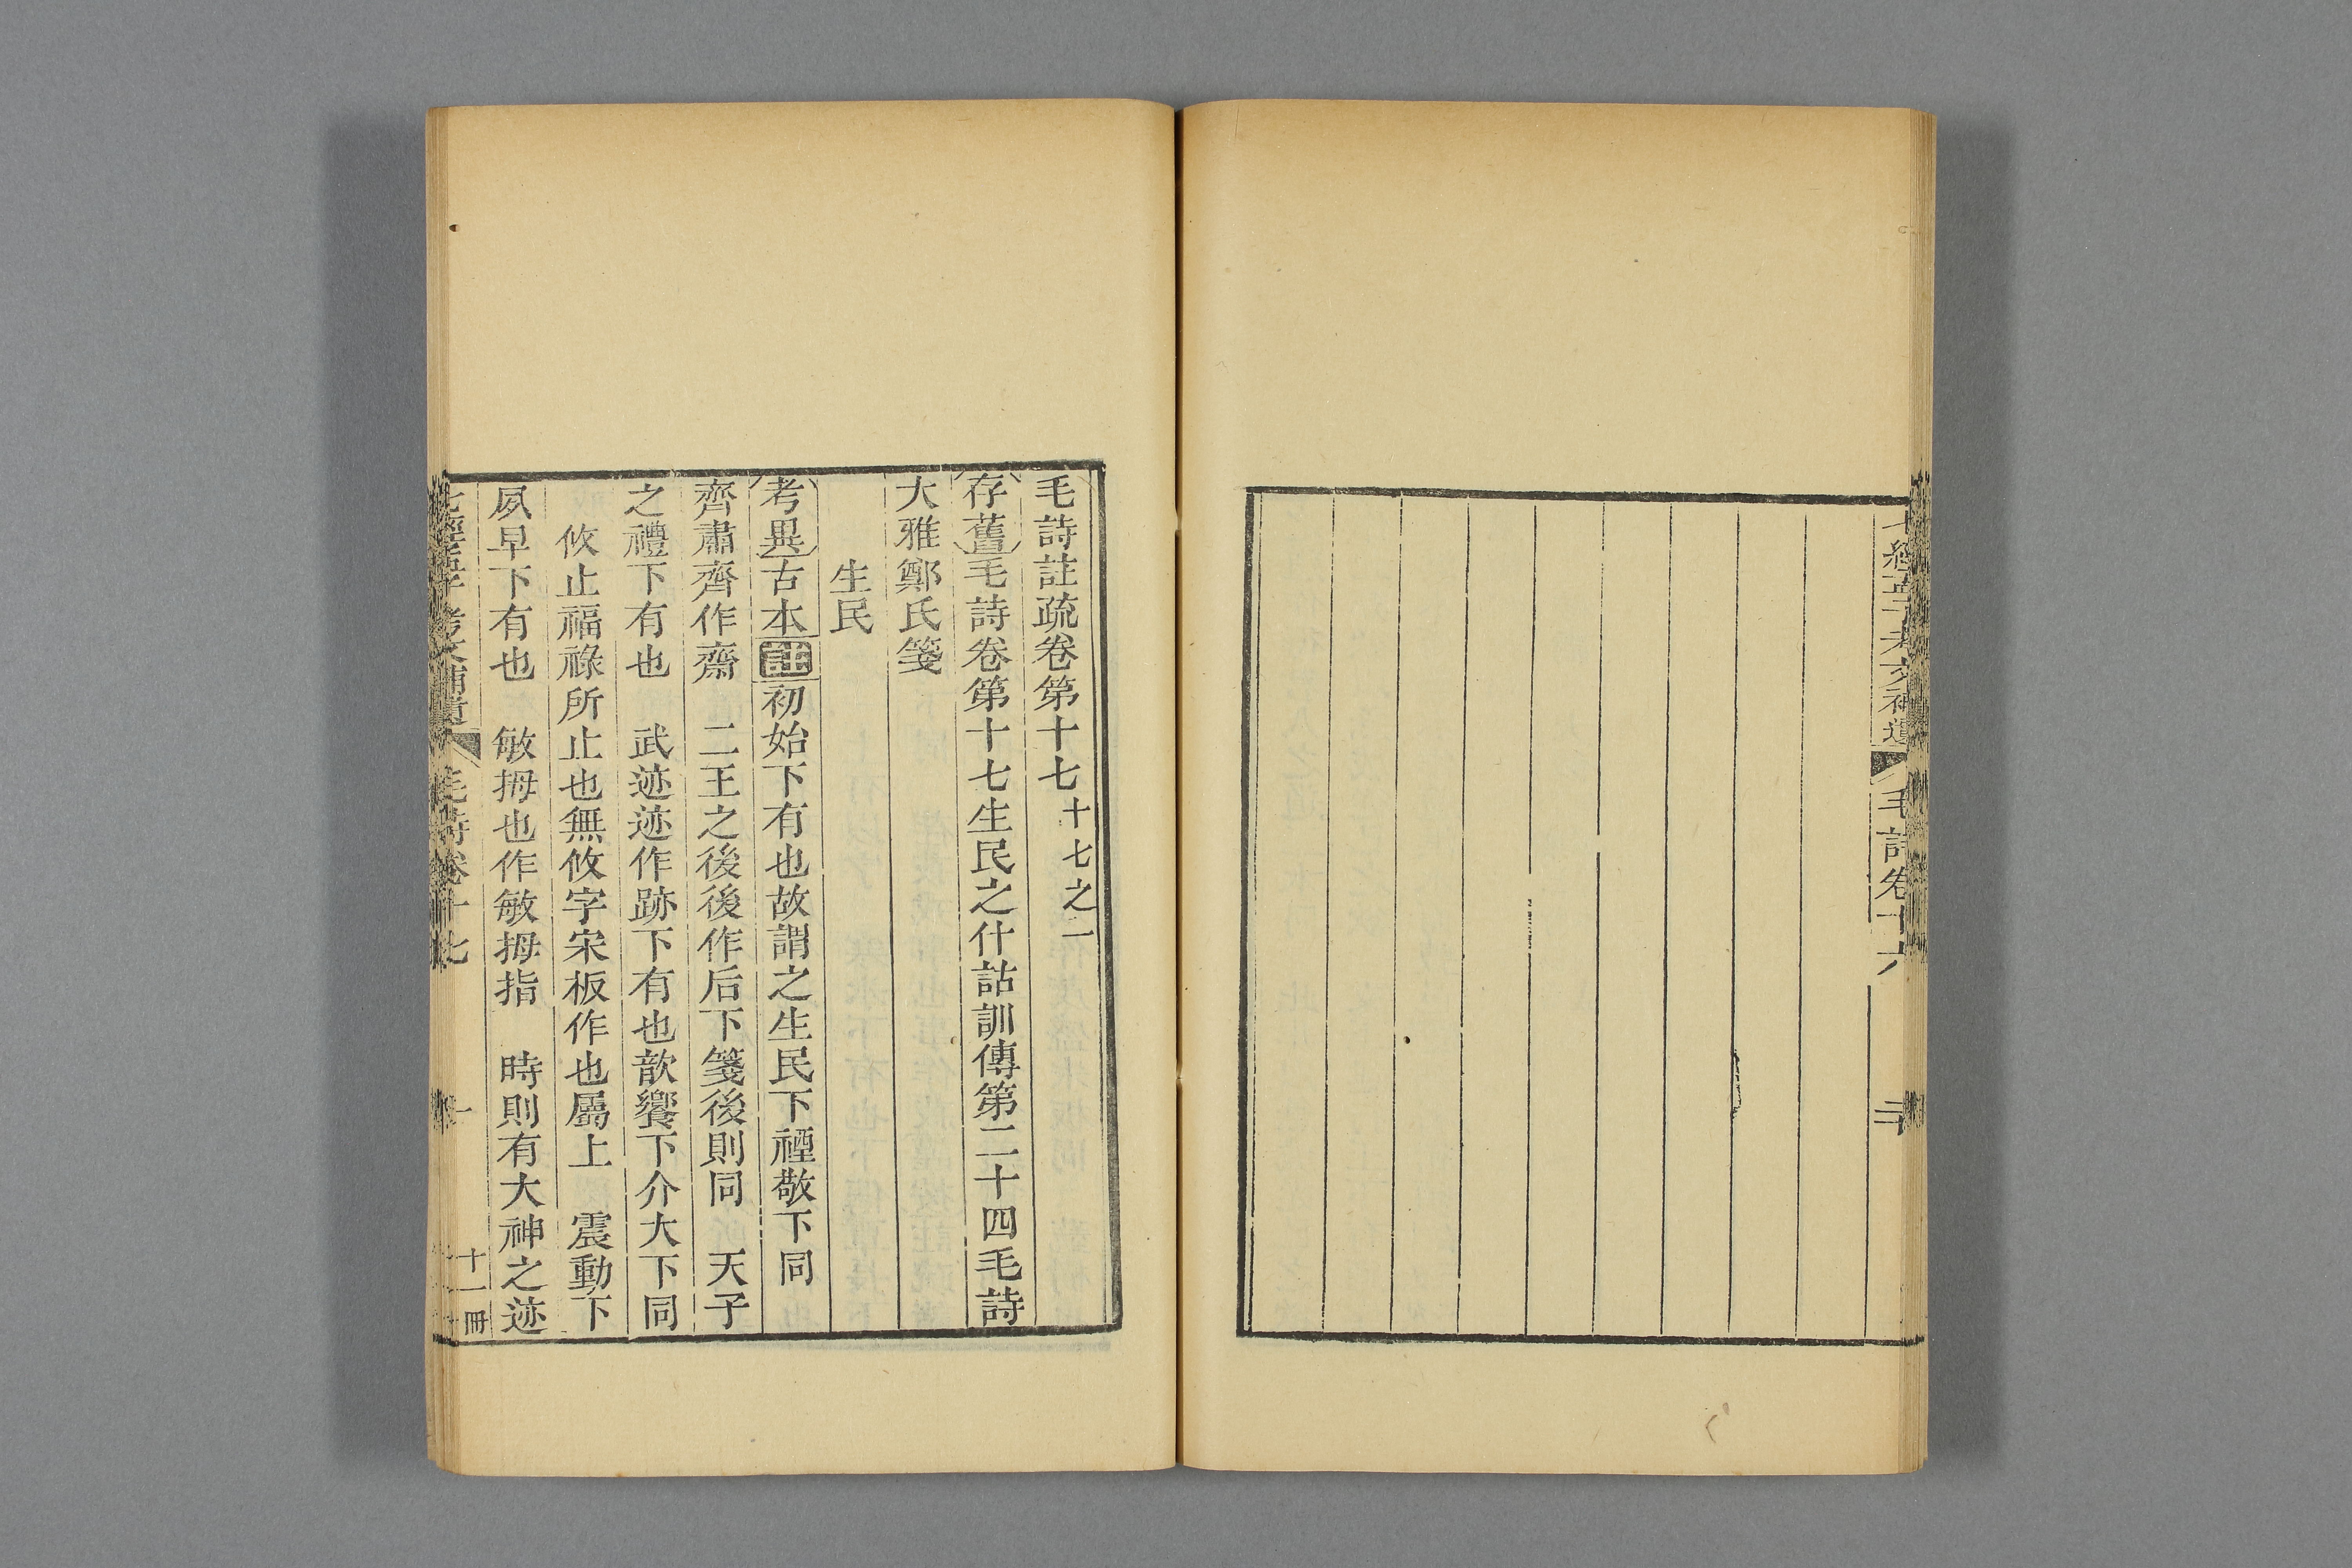 七經孟子考文補遺　毛詩卷十六
毛詩註疏卷第十七 十七之一
存舊毛詩卷第十七生民之什詁訓傳第二十四毛詩
大雅鄭氏箋
生民
考異古本註初始下有也故謂之生民下禋敬下同
齊肅齊作齋　二王之後後作后下箋後則同　天子
之禮下有也　武迹迹作跡下有也歆饗下介大下同
攸止福祿所止也無攸字宋板作也屬上　震動下
夙早下有也　敏拇也作敏拇指　時則有大神之迹
七經孟子考文補遺　毛詩卷十七　一　十一冊